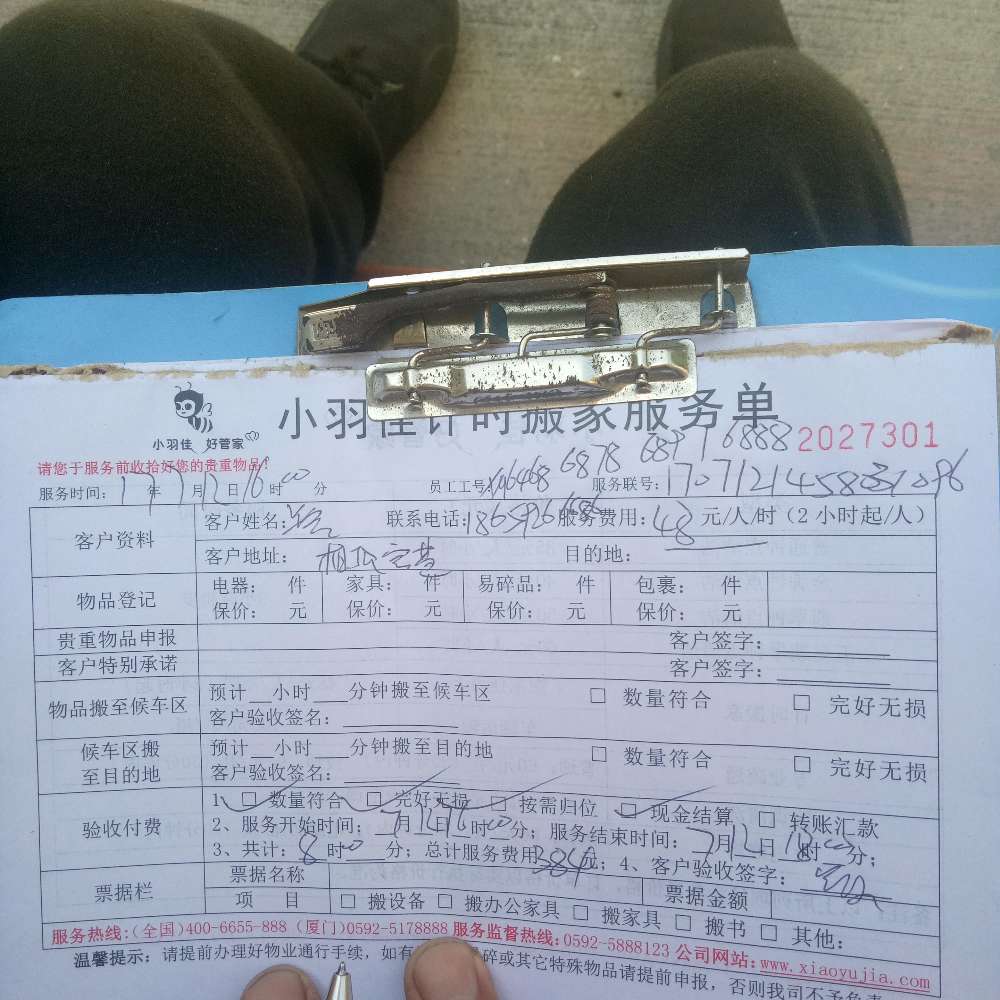 小羽佳 好管家
小羽佳计时搬家服务单
2027301
请您于服务前收拾好您的贵重物品!
6878 6888
服务时间: 17年7月12日16时00分 员工工号: 服务联号:
客户资料 客户姓名: 联系电话: 服务费用: 48元/人/时 (2小时起/人)
客户地址: 目的地:
物品登记 电器: 件 家具: 件 易碎品: 件 包裹: 件
保价: 元 保价: 元 保价: 元 保价: 元
贵重物品申报 客户签字:
客户特别承诺 客户签字:
物品搬至候车区 预计__小时___分钟搬至候车区 □ 数量符合 □ 完好无损
客户验收签名:
候车区搬至目的地 预计__小时___分钟搬至目的地 □ 数量符合 □ 完好无损
客户验收签名:
验收付费 1、□ 数量符合 □ 完好无损 □ 按需归位 □ 现金结算 □ 转账汇款
2、服务开始时间: 7月12日16时00分; 服务结束时间: 7月12日18时00分;
3、共计: 8时00分; 总计服务费用384元; 4、客户验收签字:
票据栏 票据名称 票据金额
项 目 □ 搬设备 □ 搬办公家具 □ 搬家具 □ 搬书 □ 其他:
服务热线:(全国)400-6655-888 (厦门)0592-5178888 服务监督热线:0592-5888123 公司网站:www.xiaoyujia.com
温馨提示: 请提前办理好物业通行手续, 如有 碎或其它特殊物品请提前申报, 否则我司不予负责